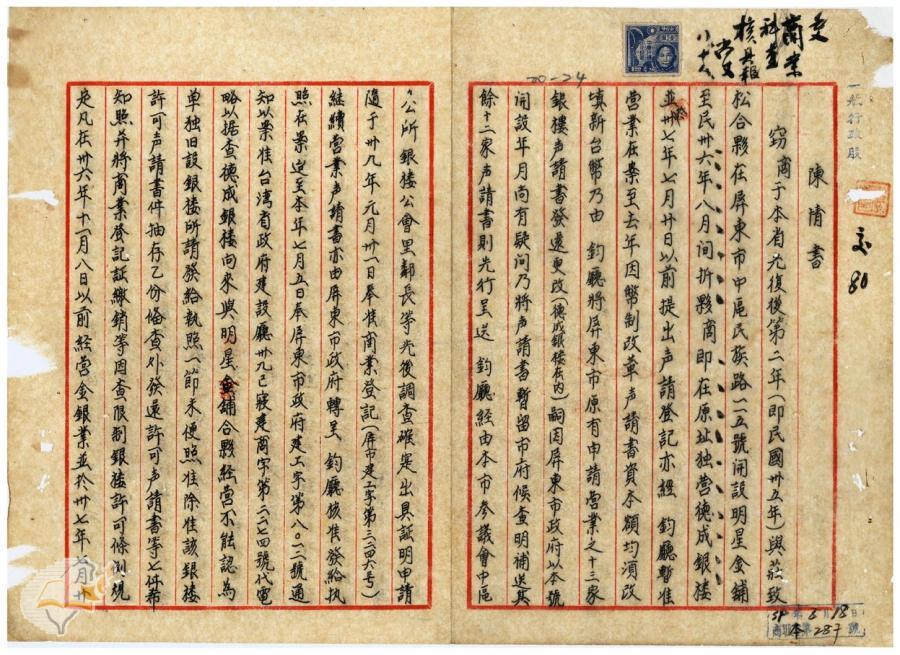 交
商業
科查
核具報
一般行政股
交 80
20-24
陳情書
窃商于本省光復後第二年(即民國卅五年)與莊致
松合夥在屏東市中區民族路一一五號開設明星金鋪
至民卅六年八月间折夥商即在原址独营德成銀楼
並於卅七年七月廿日以前提出声請登記亦經 鈞廳暫准
营業在案至去年因幣制改革声請書資本額均須改
填新台幣乃由 鈞廳將屏東市原有申請营業之十三家
銀楼声請書發還更改(德成銀楼在内)嗣因屏東市政府以本號
開設年月尚有疑问乃將声請書暫留市府候查明補送其
餘十二家声請書則先行呈送 鈞廳經由本市參議會中區
公所銀楼公會里鄰長等先後調查確定出具証明申請
隨于卅九年元月卅一日奉准商業登記(屏市建工字第三二四六号)
继續营業声請書亦由屏東市政府轉呈 鈞廳核准發給执
照在案迄至本年七月五日奉屏東市政府建工字第八〇二二號通
知以案准台湾省政府建設廳卅九已寢建商字第二二七四號代電
略以据查德成銀楼向來與明星金鋪合夥經营不能認為
单独旧設銀楼所請發給執照一節未便照准除准該銀楼
許可声請書件抽存乙份俻查外發還許可声請書等七件希
知照并將商業登記証繳銷等因查限制銀楼許可條例規
定凡在卅六年十一月八日以前經营金銀業並於卅七年 月廿
5月18日
287號